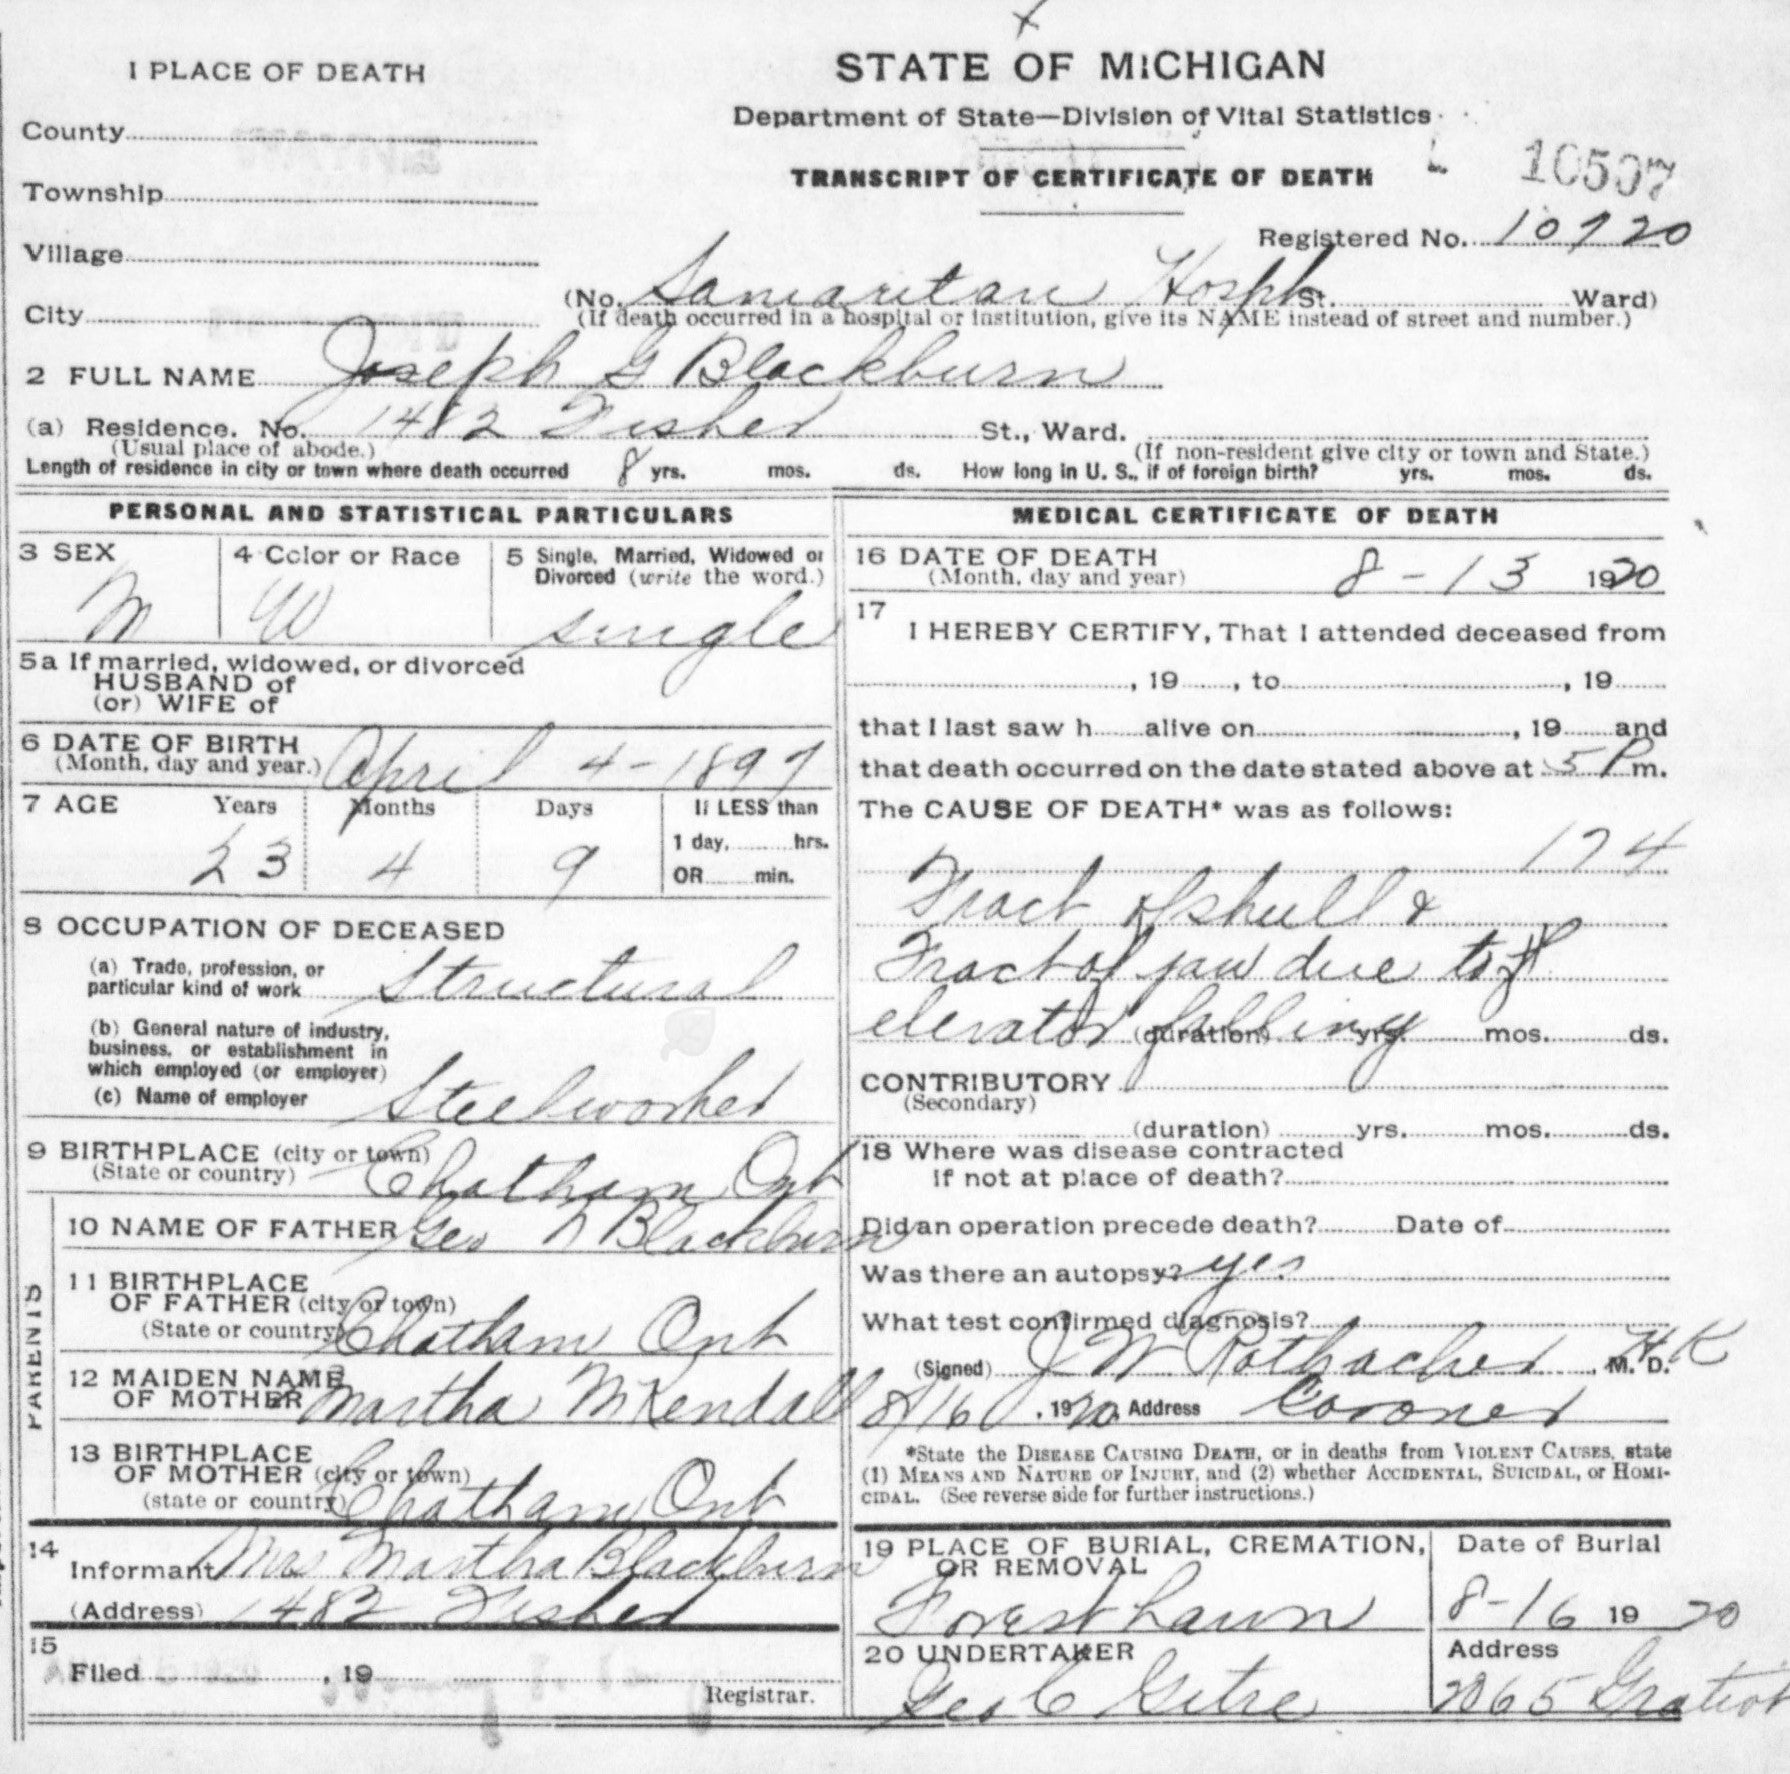 STATE OF MICHIGAN
Department of State—Division of Vital Statistics
TRANSCRIPT OF CERTIFICATE OF DEATH
10507
Registered No. 10720
1 PLACE OF DEATH
County
Township
Village
City
(No. Samaritan Hosph St. Ward)
(If death occurred in a hospital or institution, give its NAME instead of street and number.)
2 FULL NAME Joseph G Blackburn
(a) Residence. No. 1482 Fisher St., Ward.
(Usual place of abode.) (If non-resident give city or town and State.)
Length of residence in city or town where death occurred 8 yrs. mos. ds. How long in U. S., if of foreign birth? yrs. mos. ds.
PERSONAL AND STATISTICAL PARTICULARS
3 SEX 4 Color or Race 5 Single, Married, Widowed or
Divorced (write the word.)
M W single
5a If married, widowed, or divorced
HUSBAND of
(or) WIFE of
6 DATE OF BIRTH
(Month, day and year.) April 4-1897
7 AGE Years Months Days If LESS than
1 day, hrs.
23 4 9
OR min.
8 OCCUPATION OF DECEASED
(a) Trade, profession, or
particular kind of work Structural
(b) General nature of industry,
business, or establishment in
which employed (or employer)
(c) Name of employer Steelworker
9 BIRTHPLACE (city or town)
(State or country) Chatham Ont
PARENTS
10 NAME OF FATHER Geo Blackburn
11 BIRTHPLACE
OF FATHER (city or town)
(State or country) Chatham Ont
12 MAIDEN NAME
OF MOTHER Martha McKendall
13 BIRTHPLACE
OF MOTHER (city or town)
(state or country) Chatham Ont
14
Informant Mrs Martha Blackburn
(Address) 1482 Fisher
15
Filed , 19
Registrar.
MEDICAL CERTIFICATE OF DEATH
16 DATE OF DEATH
(Month, day and year) 8-13 1920
17
I HEREBY CERTIFY, That I attended deceased from
, 19 , to , 19
that I last saw h alive on , 19 and
that death occurred on the date stated above at 5 P m.
The CAUSE OF DEATH* was as follows:
174
Fract of skull &
Fract of jaw due to
elevator falling
(duration) yrs. mos. ds.
CONTRIBUTORY
(Secondary)
(duration) yrs. mos. ds.
18 Where was disease contracted
if not at place of death?
Did an operation precede death? Date of
Was there an autopsy? yes
What test confirmed diagnosis?
(Signed) J W Rothacher , M. D.
8/16 , 1920 Address Coroner
*State the DISEASE CAUSING DEATH, or in deaths from VIOLENT CAUSES, state
(1) MEANS AND NATURE OF INJURY, and (2) whether ACCIDENTAL, SUICIDAL, or HOMI-
CIDAL. (See reverse side for further instructions.)
19 PLACE OF BURIAL, CREMATION,
OR REMOVAL
Forest Lawn
Date of Burial
8-16 1920
20 UNDERTAKER
Geo C Getre
Address
2065 Gratiot